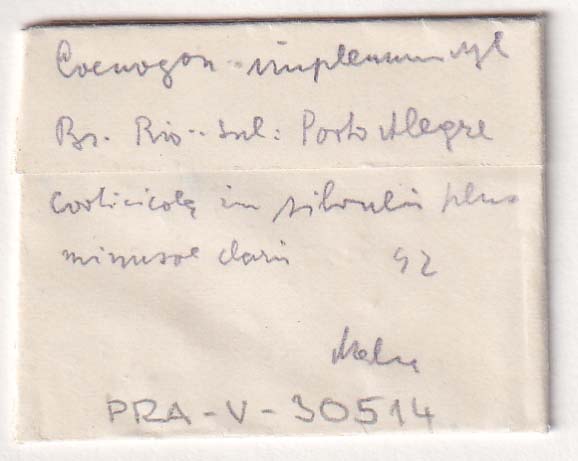 Coenogon. implexum Nyl
Br. Rio-. sul: Porto Alegre
corticola in silvulis plus
minusve claris 92
Malme
PRA-V-30514